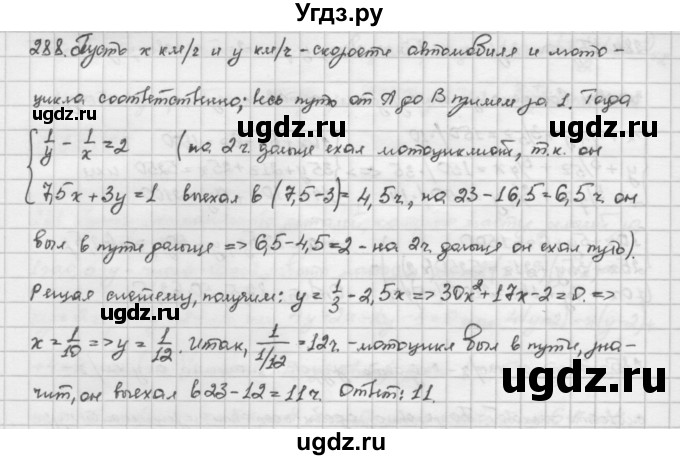 Угдз.ру
288. Пусть x км/г и y км/ч - скорости автомобиля и мото-
цикла соответственно; весь путь от A до B примем за 1. Тогда
ugdz.ru ugdz.ru
{ 1/y - 1/x = 2 (на 2 ч. дальше ехал мотоциклист, т.к. он
7,5x + 3y = 1 выехал в (7,5-3) = 4,5ч., на 23-16,5 = 6,5ч. он
ugdz.ru ugdz.ru
был в пути дальше => 6,5-4,5=2 - на 2ч. дальше он ехал путь).
ugdz.ru ugdz.ru
Решая систему, получим: y = 1/3 - 2,5x => 30x²+17x-2=0. =>
x = 1/10 => y = 1/12. Итак, 1/(1/12) = 12ч. - мотоцикл был в пути, зна-
ugdz.ru ugdz.ru
чит, он выехал в 23-12 = 11ч. Ответ: 11.
ugdz.ru ugdz.ru